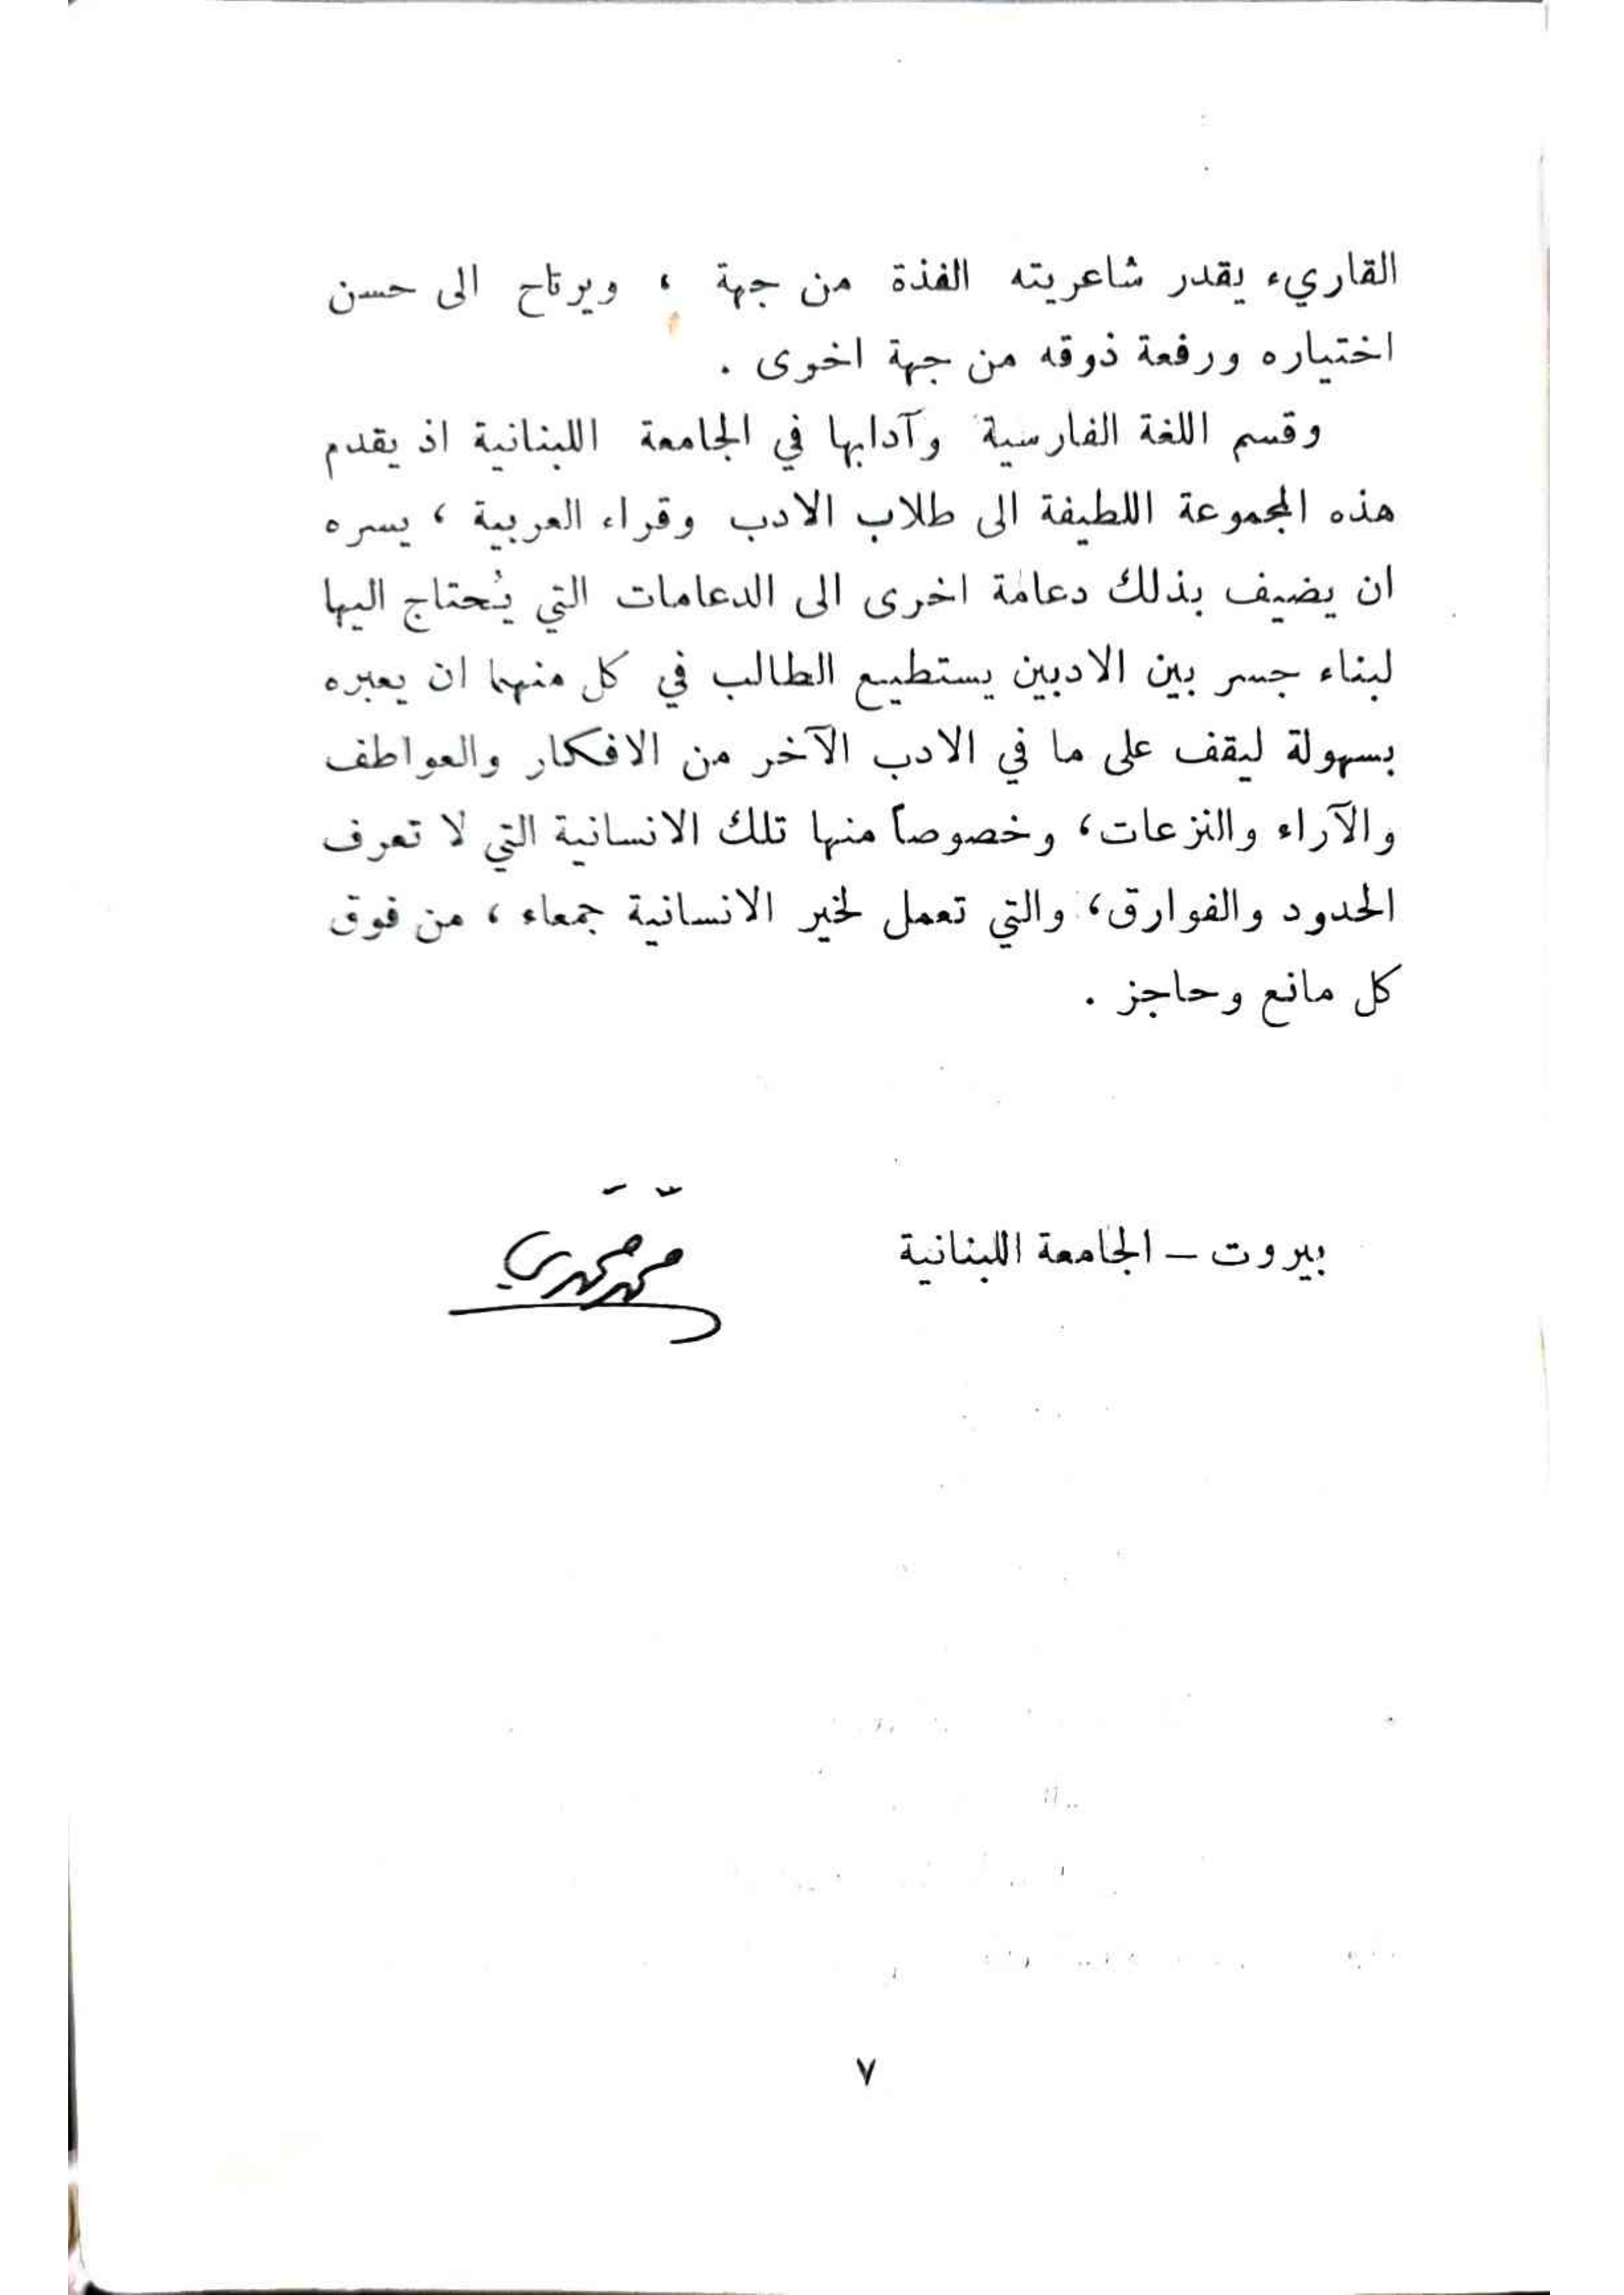 القاريء يقدر شاعريته الفذة من جهة ، ويرتاح الى حسن
اختياره ورفعة ذوقه من جهة اخرى .
وقسم اللغة الفارسية وآدابها في الجامعة اللبنانية اذ يقدم
هذه المجموعة اللطيفة الى طلاب الادب وقراء العربية ، يسره
ان يضيف بذلك دعامة اخرى الى الدعامات التي يُحتاج اليها
لبناء جسر بين الادبين يستطيع الطالب في كل منهما ان يعبره
بسهولة ليقف على ما في الادب الآخر من الافكار والعواطف
والآراء والنزعات، وخصوصاً منها تلك الانسانية التي لا تعرف
الحدود والفوارق، والتي تعمل لخير الانسانية جمعاء ، من فوق
كل مانع وحاجز .
بيروت – الجامعة اللبنانية
محمد محمدي
٧